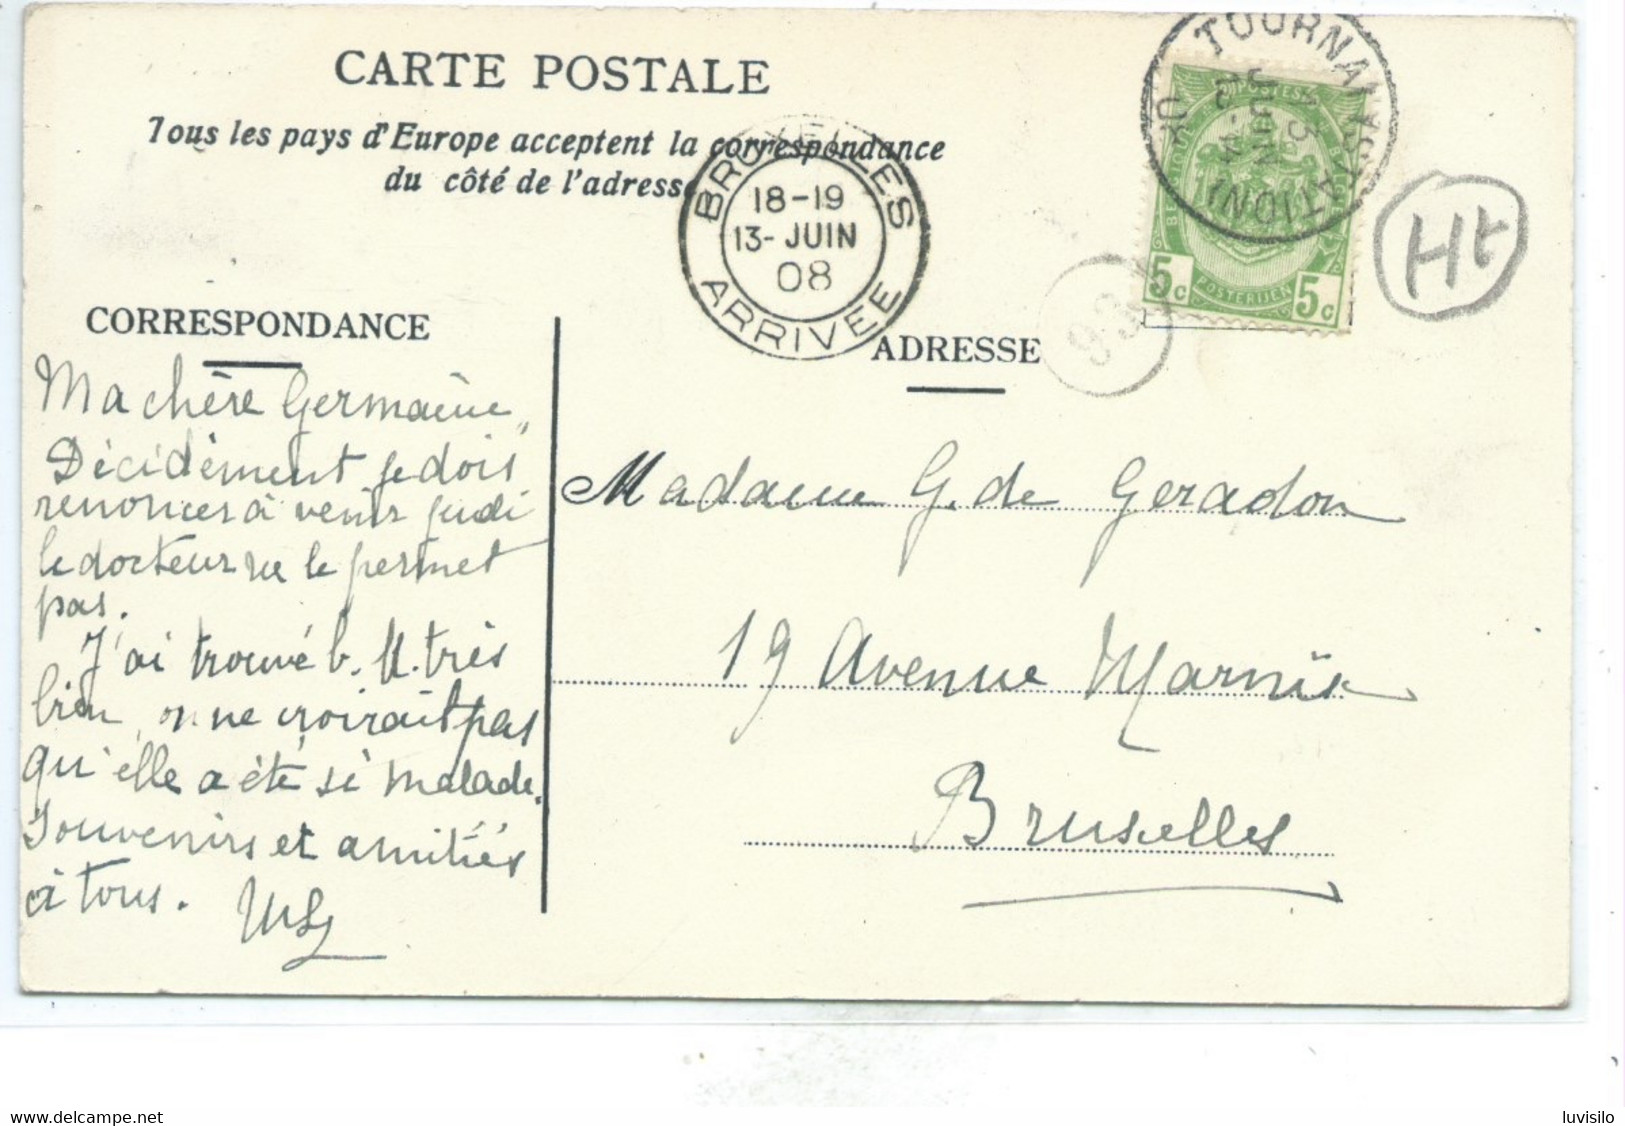 CARTE POSTALE
Tous les pays d'Europe acceptent la correspondance
du côté de l'adresse
BRUXELLES
18-19
13-JUIN
08
ARRIVEE
TOURNAI (STATION)
13
JUIN
08
5c
POSTERIJEN
5c
93
Ht
CORRESPONDANCE
ADRESSE
Ma chère Germaine,
Décidément je dois
renoncer à venir jeudi
le docteur ne le permet
pas.
J'ai trouvé b. M. très
bien, on ne croirait pas
qu'elle a été si malade.
Souvenirs et amitiés
à tous.
Madame G. de Geradon
19 Avenue Marnix
Bruxelles
delcampe.net
luvisilo